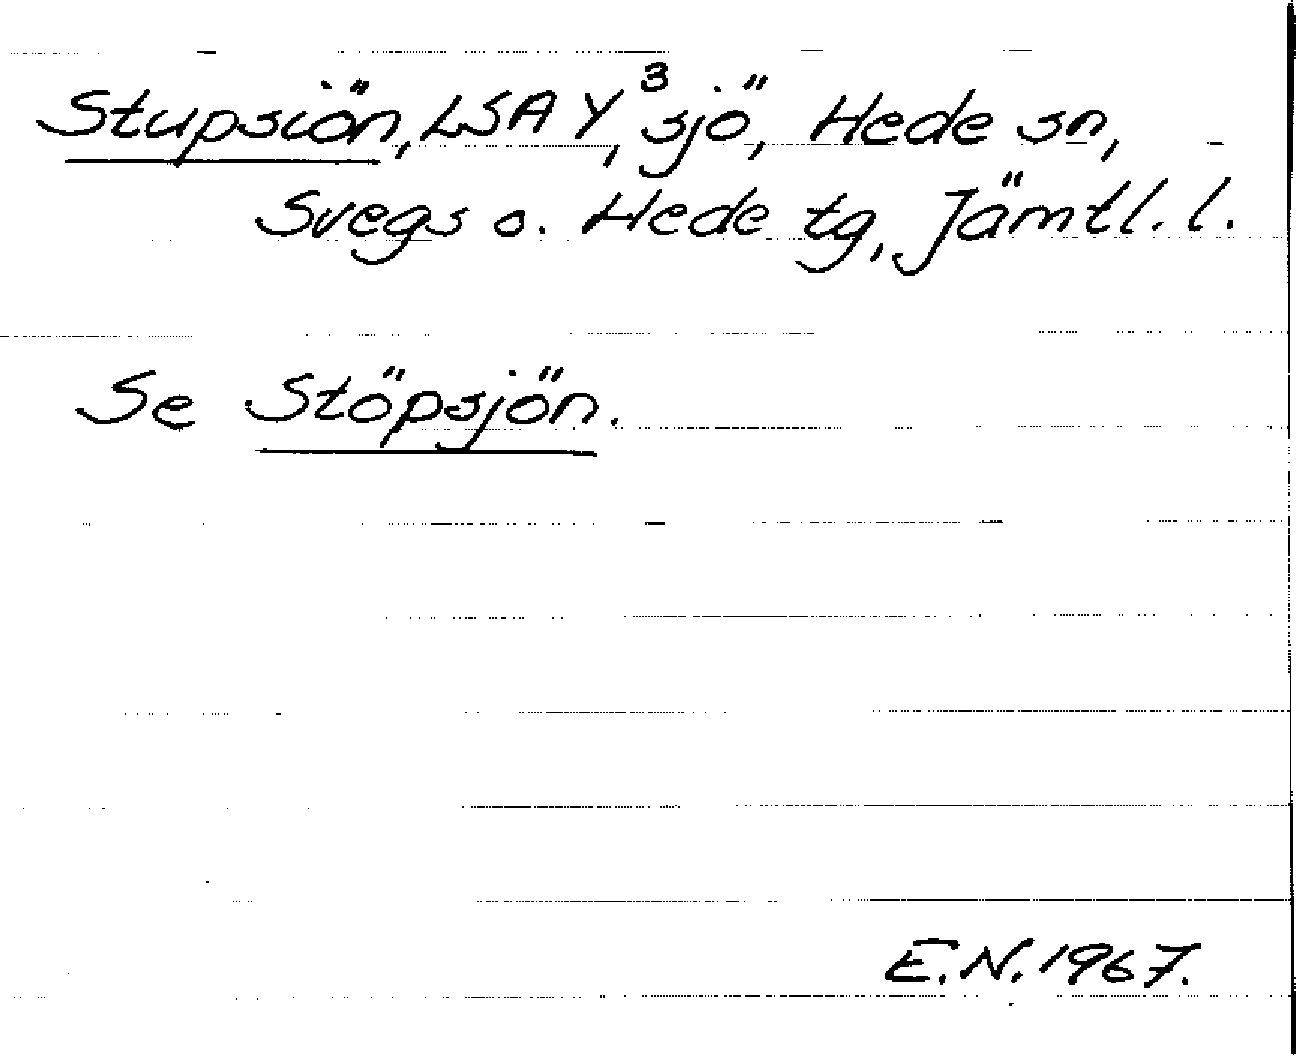 Stupsiön, LSA Y³, sjö, Hede sn,
Svegs o. Hede tg, Jämtl. l.
Se Stöpsjön.
E.N. 1967.